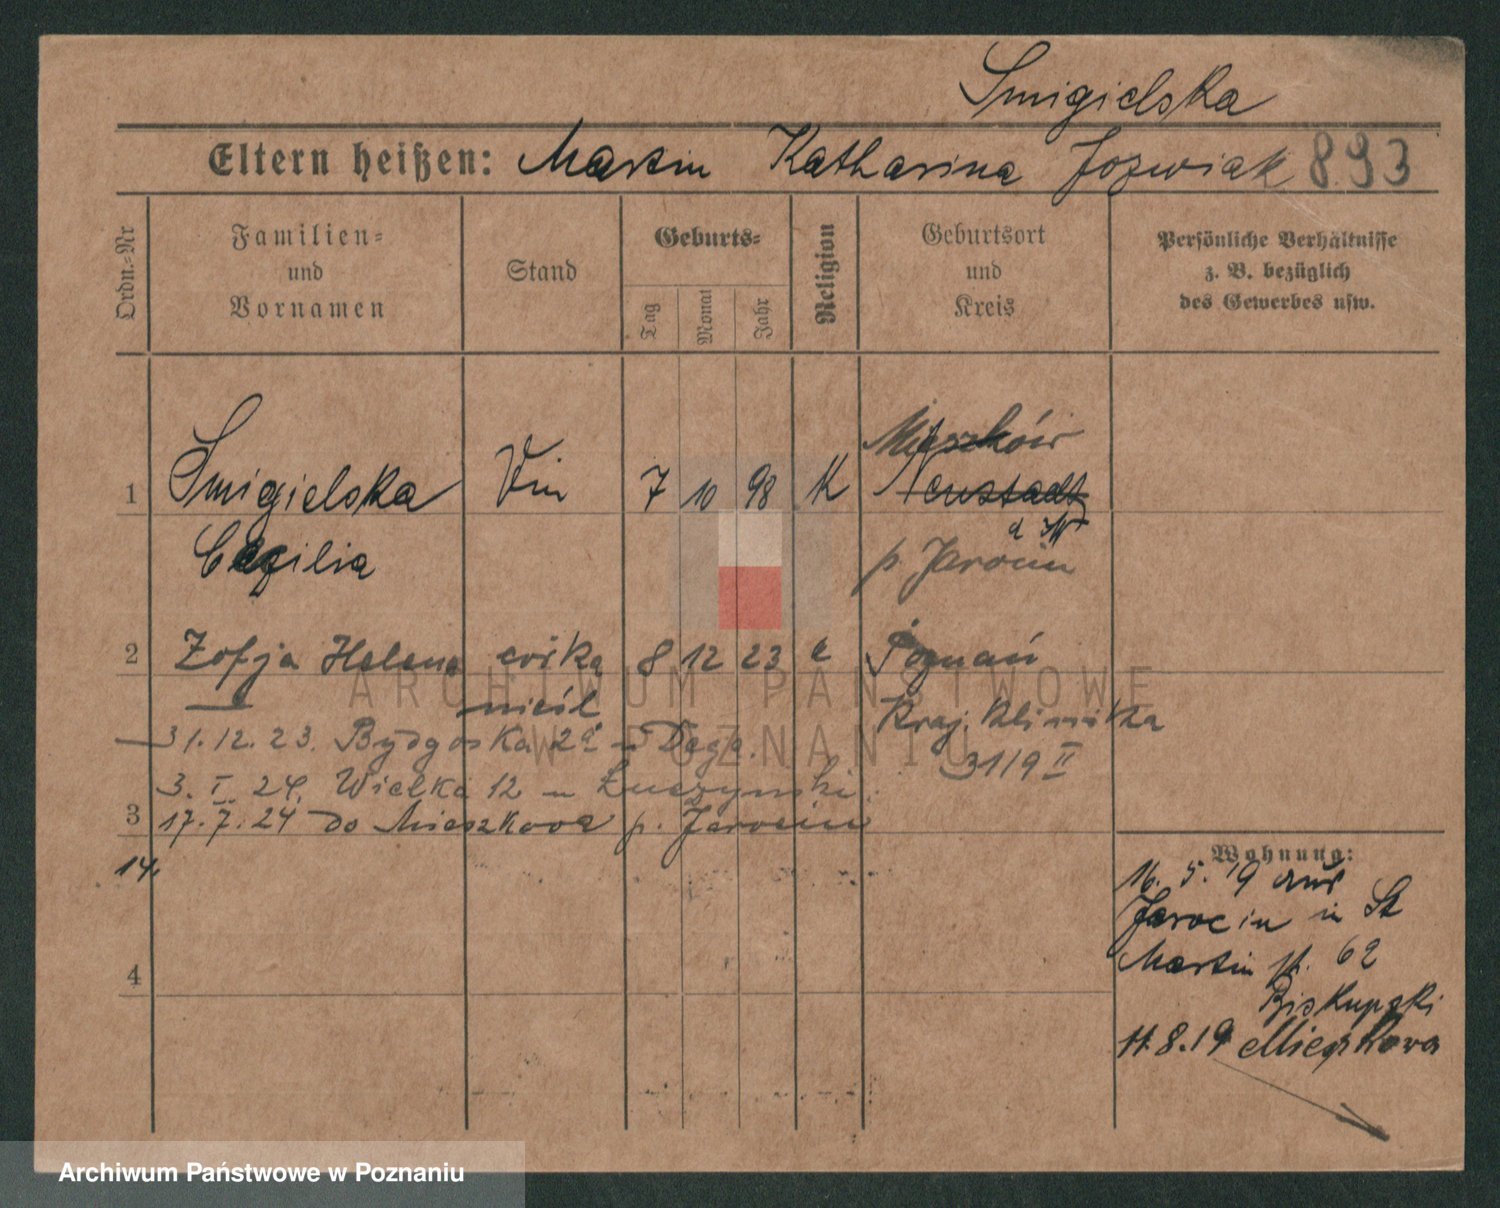 Smigielska
Eltern heißen: Martin Katharina Jozwiak 893
Ordn.=Nr
Familien=
und
Vornamen
Stand
Geburts=
Tag
Monat
Jahr
Religion
Geburtsort
und
Kreis
Persönliche Verhältnisse
z. B. bezüglich
des Gewerbes usw.
Mieszków
1 Smigielska 7 10 98 K Neustadt
Cezilia
p. Jarocin
2 Zofja Helena córka 8 12 23 Poznań
nieśl Kraj. Klinika
31.12.23. Bydgoska
3. I. 24. Wielka 12 Łuczynski 3119 II
3 17.7.24 do Mieszkowa p. Jarocin
14.
4
Wohnung:
16. 5. 19 aus
Jarocin in St
Martin st. 62
Biskupski
11.8.19 Mieszkowa
ARCHIWUM PAŃSTWOWE
W POZNANIU
Archiwum Państwowe w Poznaniu